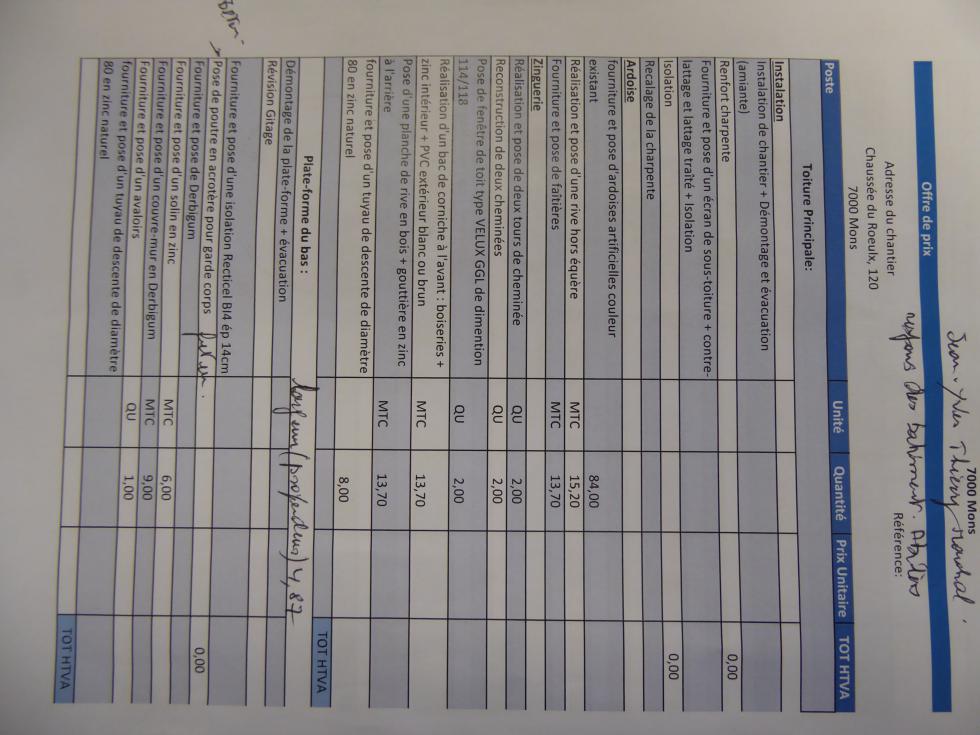 7000 Mons
Offre de prix
Référence:
Adresse du chantier
Chaussée du Roeulx, 120
7000 Mons
Jean-Yves Thierry Marichal
des batiment.
Poste Unité Quantité Prix Unitaire TOT HTVA
Toiture Principale:
Instalation
Instalation de chantier + Démontage et évacuation
(amiante)
Renfort charpente 0,00
Fourniture et pose d'un écran de sous-toiture + contre-
lattage et lattage traité + Isolation
Isolation 0,00
Recalage de la charpente
Ardoise
fourniture et pose d'ardoises artificielles couleur
existant 84,00
Réalisation et pose d'une rive hors équère MTC 15,20
Fourniture et pose de faîtières MTC 13,70
Zinguerie
Réalisation et pose de deux tours de cheminée QU 2,00
Reconstruction de deux cheminées QU 2,00
Pose de fenêtre de toit type VELUX GGL de dimention
114/118 QU 2,00
Réalisation d'un bac de corniche à l'avant : boiseries +
zinc intérieur + PVC extérieur blanc ou brun MTC 13,70
Pose d'une planche de rive en bois + gouttière en zinc
à l'arrière MTC 13,70
fourniture et pose d'un tuyau de descente de diamètre
80 en zinc naturel 8,00
TOT HTVA
Plate-forme du bas : largeur (profondeur) 4,87
Démontage de la plate-forme + évacuation
Révision Gitage
Fourniture et pose d'une isolation Recticel BI4 ép 14cm
Pose de poutre en acrotère pour garde corps
Fourniture et pose de Derbigum 0,00
Fourniture et pose d'un solin en zinc MTC 6,00
Fourniture et pose d'un couvre-mur en Derbigum MTC 9,00
Fourniture et pose d'un avaloirs QU 1,00
fourniture et pose d'un tuyau de descente de diamètre
80 en zinc naturel
TOT HTVA